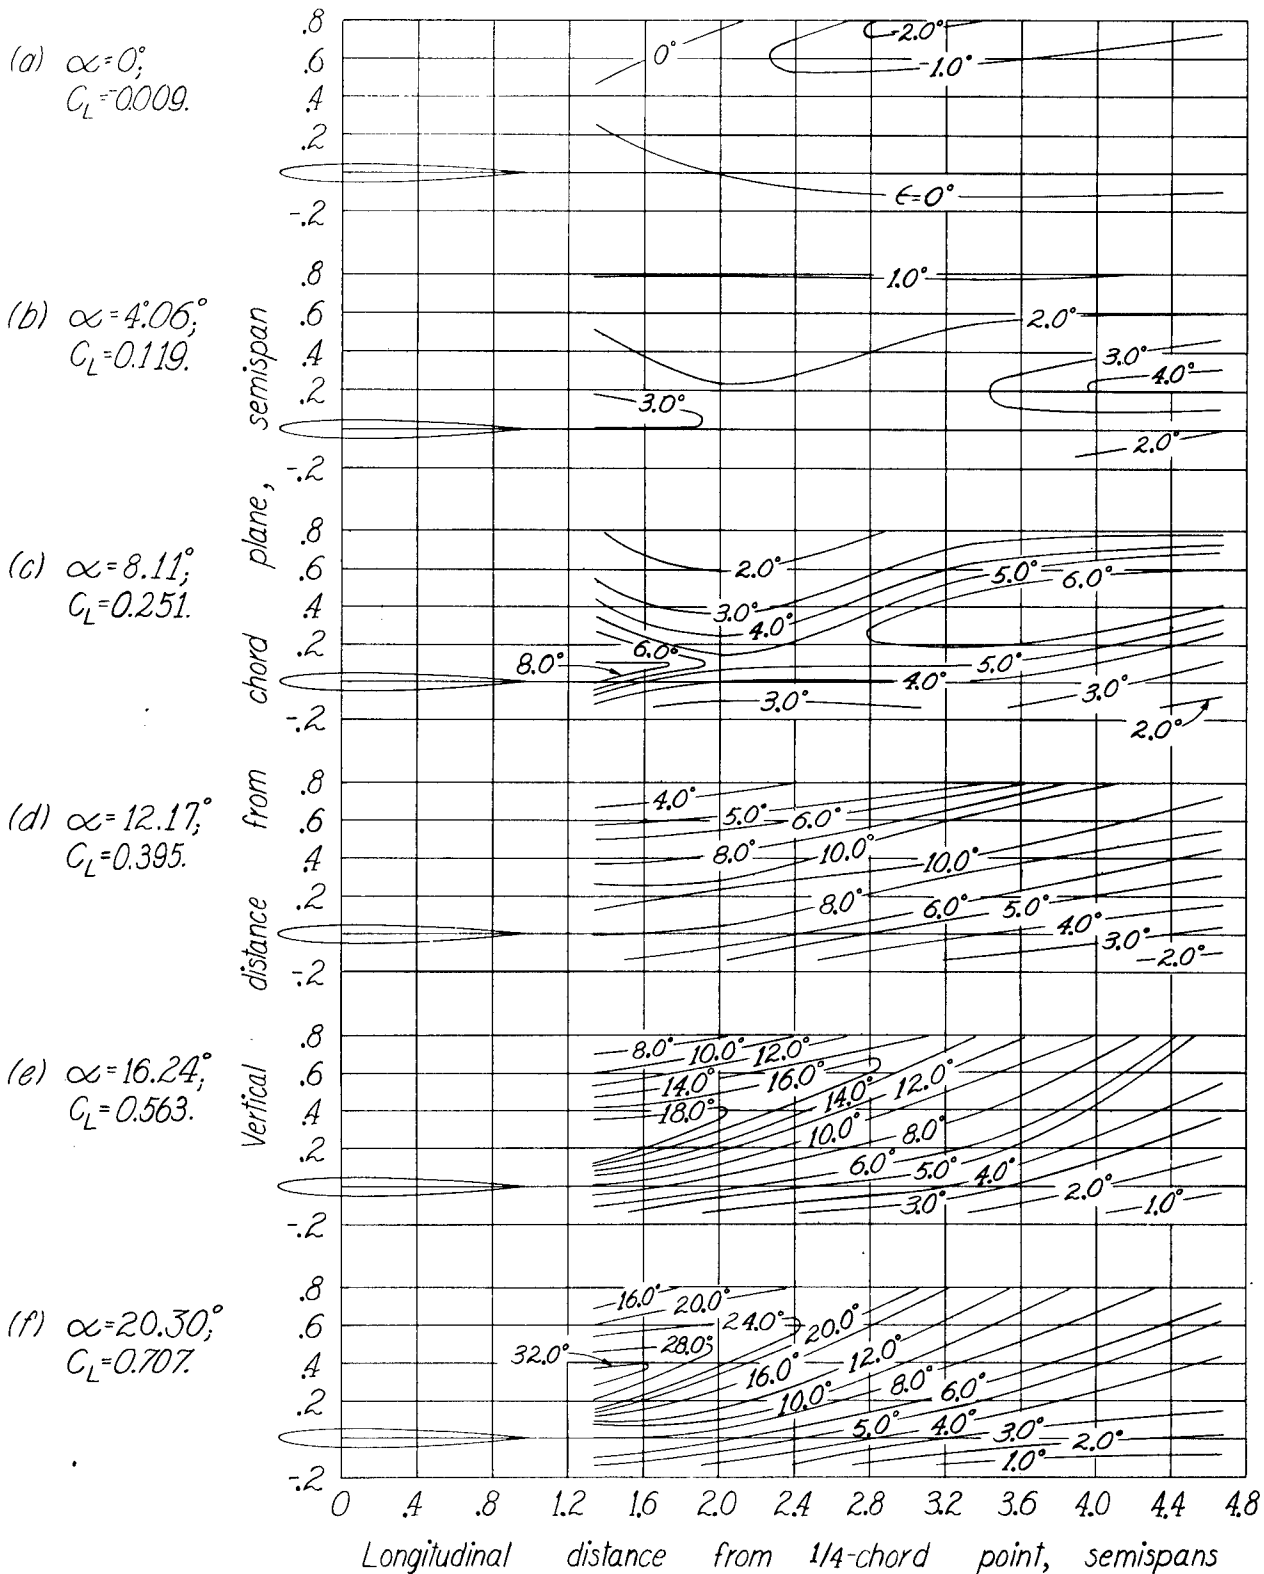 (a) α=0°;
C_L=-0.009.
.8
.6
.4
.2
-.2
0°
-2.0°
-1.0°
ϵ=0°
(b) α=4.06°;
C_L=0.119.
.8
.6
.4
.2
-.2
1.0°
2.0°
3.0°
4.0°
3.0°
2.0°
(c) α=8.11°;
C_L=0.251.
.8
.6
.4
.2
-.2
2.0°
5.0°
6.0°
3.0°
4.0°
6.0°
8.0°
5.0°
4.0°
3.0°
3.0°
2.0°
(d) α=12.17°;
C_L=0.395.
.8
.6
.4
.2
-.2
4.0°
5.0°
6.0°
8.0°
10.0°
10.0°
8.0°
6.0°
5.0°
4.0°
3.0°
2.0°
(e) α=16.24°;
C_L=0.563.
.8
.6
.4
.2
-.2
8.0°
10.0°
12.0°
14.0°
16.0°
14.0°
12.0°
18.0°
10.0°
8.0°
6.0°
5.0°
4.0°
3.0°
2.0°
1.0°
(f) α=20.30°;
C_L=0.707.
.8
.6
.4
.2
-.2
16.0°
20.0°
24.0°
20.0°
28.0°
32.0°
16.0°
12.0°
10.0°
8.0°
6.0°
5.0°
4.0°
3.0°
2.0°
1.0°
Vertical distance from chord plane, semispan
0 .4 .8 1.2 1.6 2.0 2.4 2.8 3.2 3.6 4.0 4.4 4.8
Longitudinal distance from 1/4-chord point, semispans